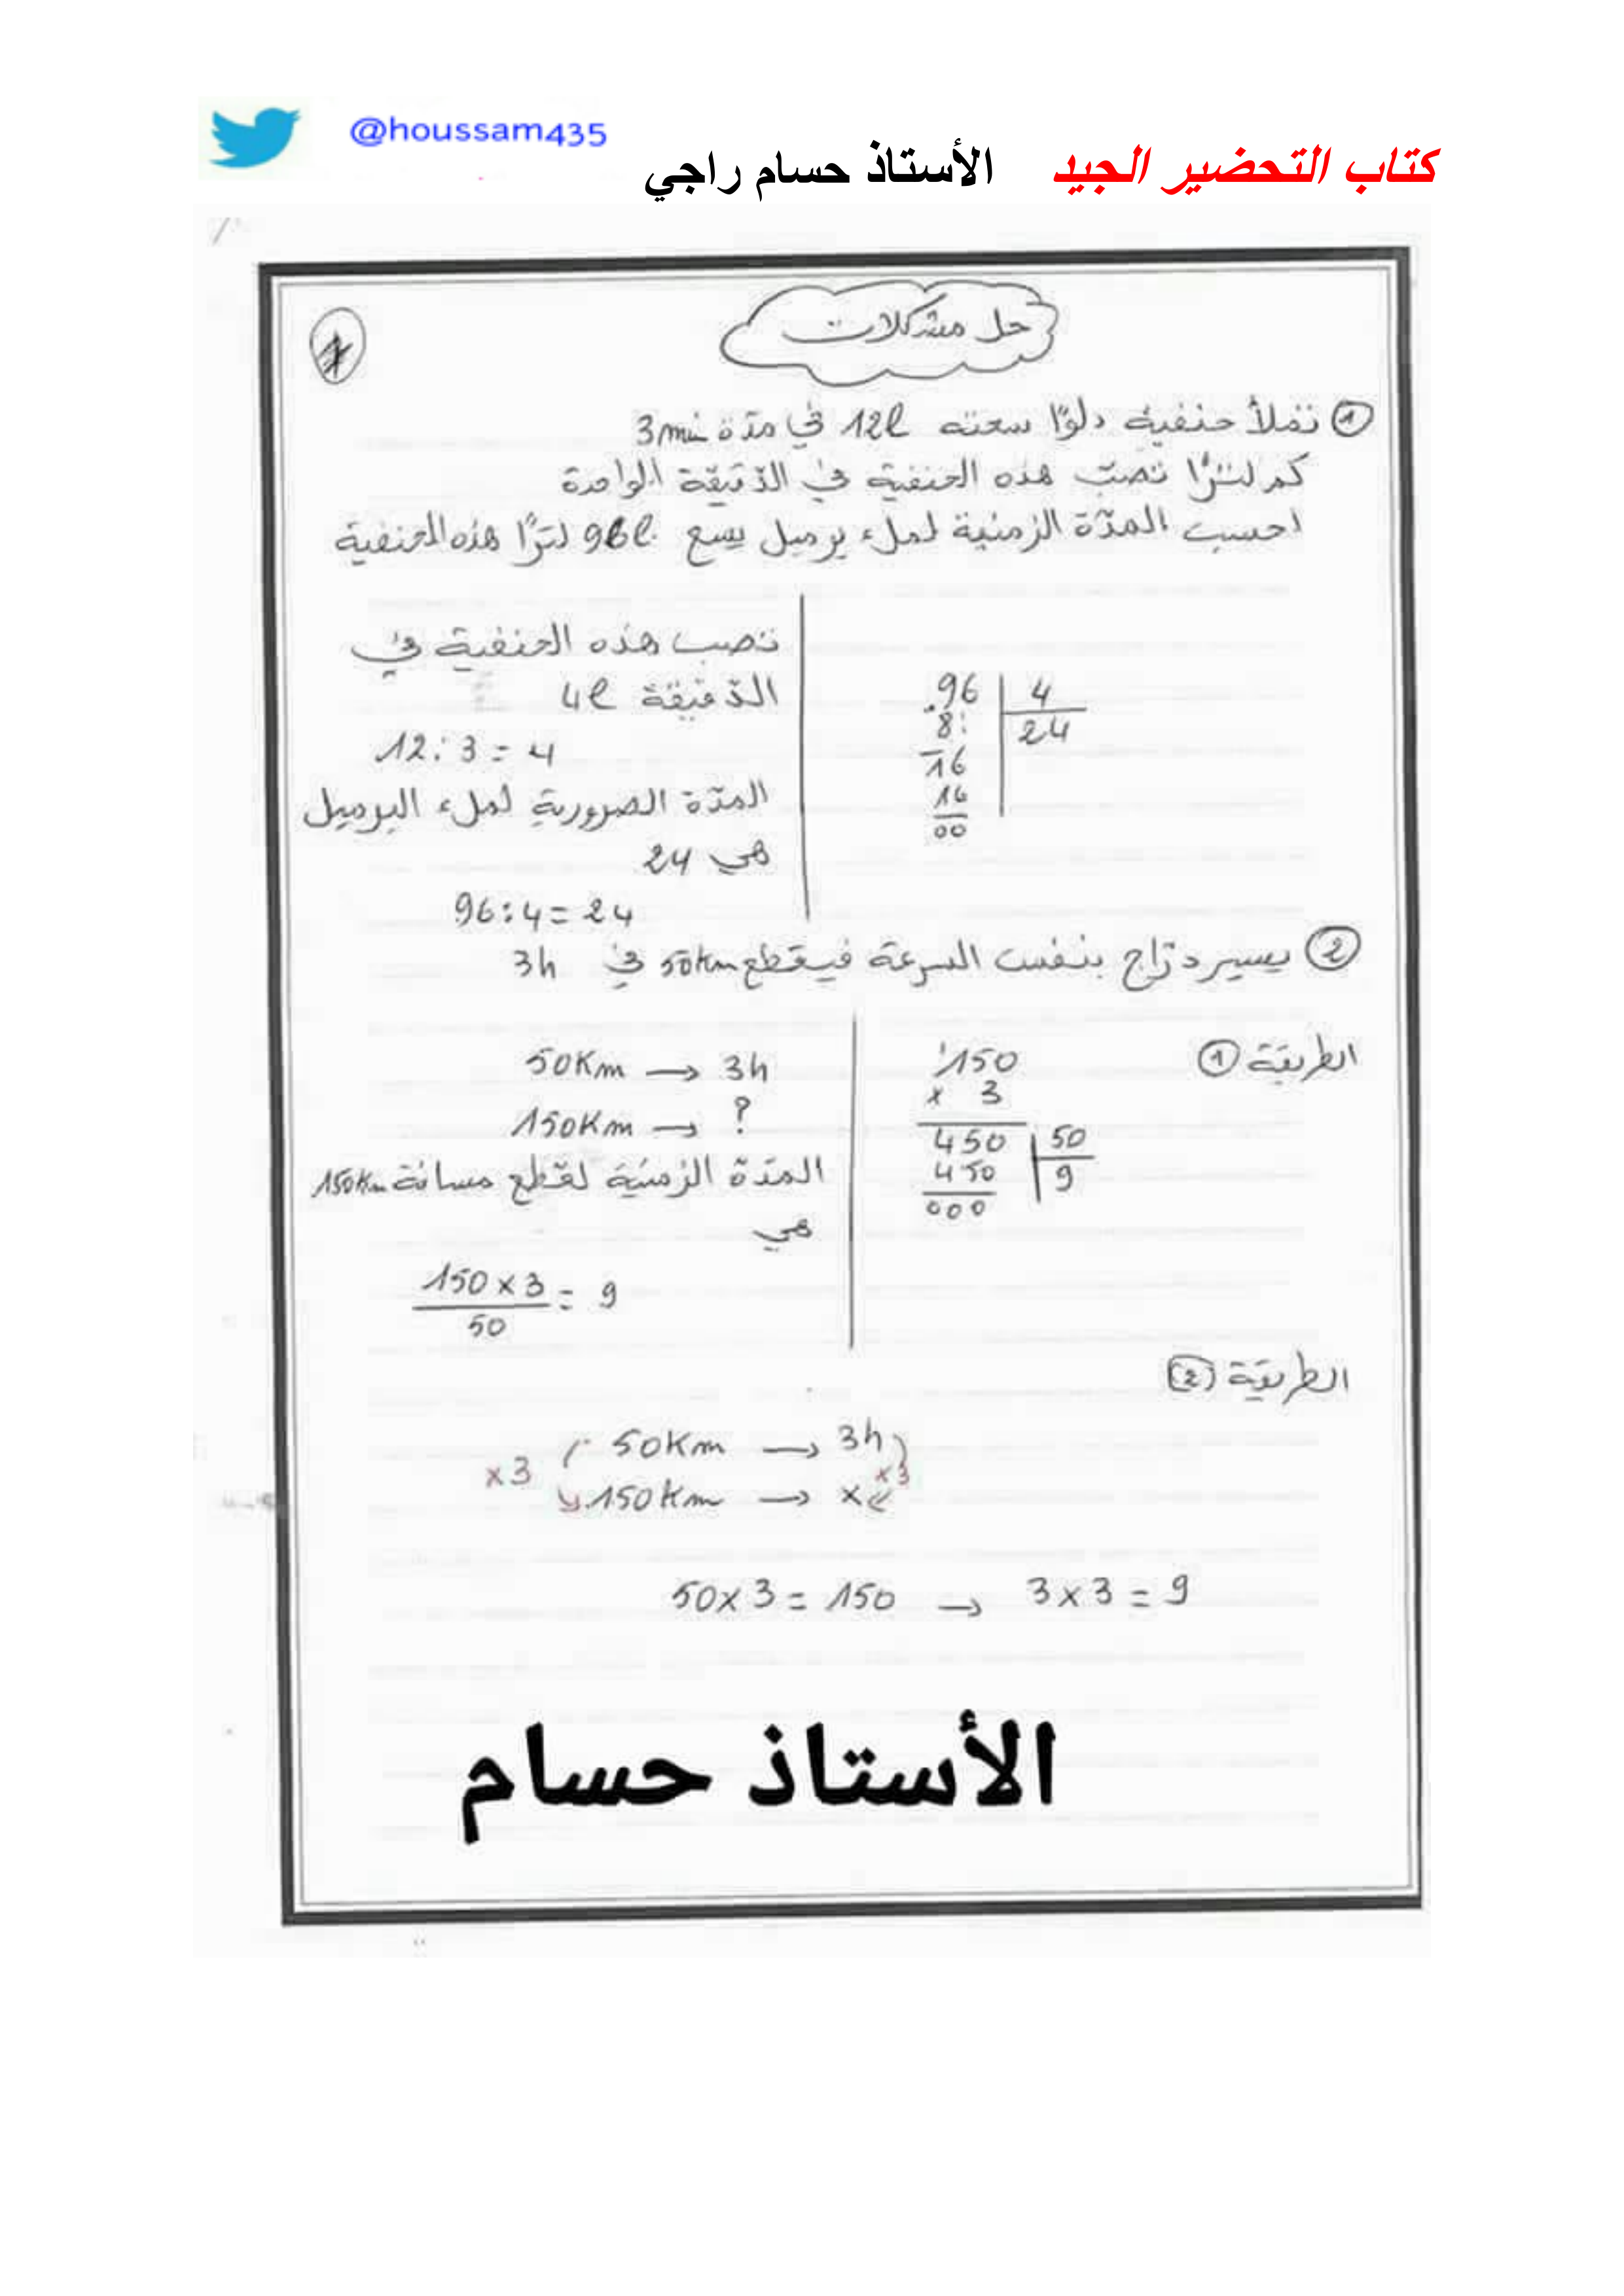 @houssam435
كتاب التحضير الجيد الأستاذ حسام راجي
حل مشكلات
① تملأ حنفية دلوًا سعته 12l في مدّة 3min
كم لترًا تصبّ هذه الحنفية في الدّقيقة الواحدة
احسب المدّة الزمنية لملء برميل يسع 96l لترًا هذه الحنفية
تصب هذه الحنفية في
الدّقيقة 4l
12:3=4
المدّة الضرورية لملء البرميل
هي 24
96:4=24
96 | 4
8 | 24
16
16
00
② يسير درّاج بنفس السرعة فيقطع 50km في 3h
الطريقة ①
50Km → 3h
150Km → ?
المدّة الزمنية لقطع مسافة 150Km
هي
150×3 = 9
50
150
× 3
450 | 50
450 | 9
000
الطريقة ②
50Km → 3h
×3 ×3
150Km → x
50×3=150 → 3×3=9
الأستاذ حسام